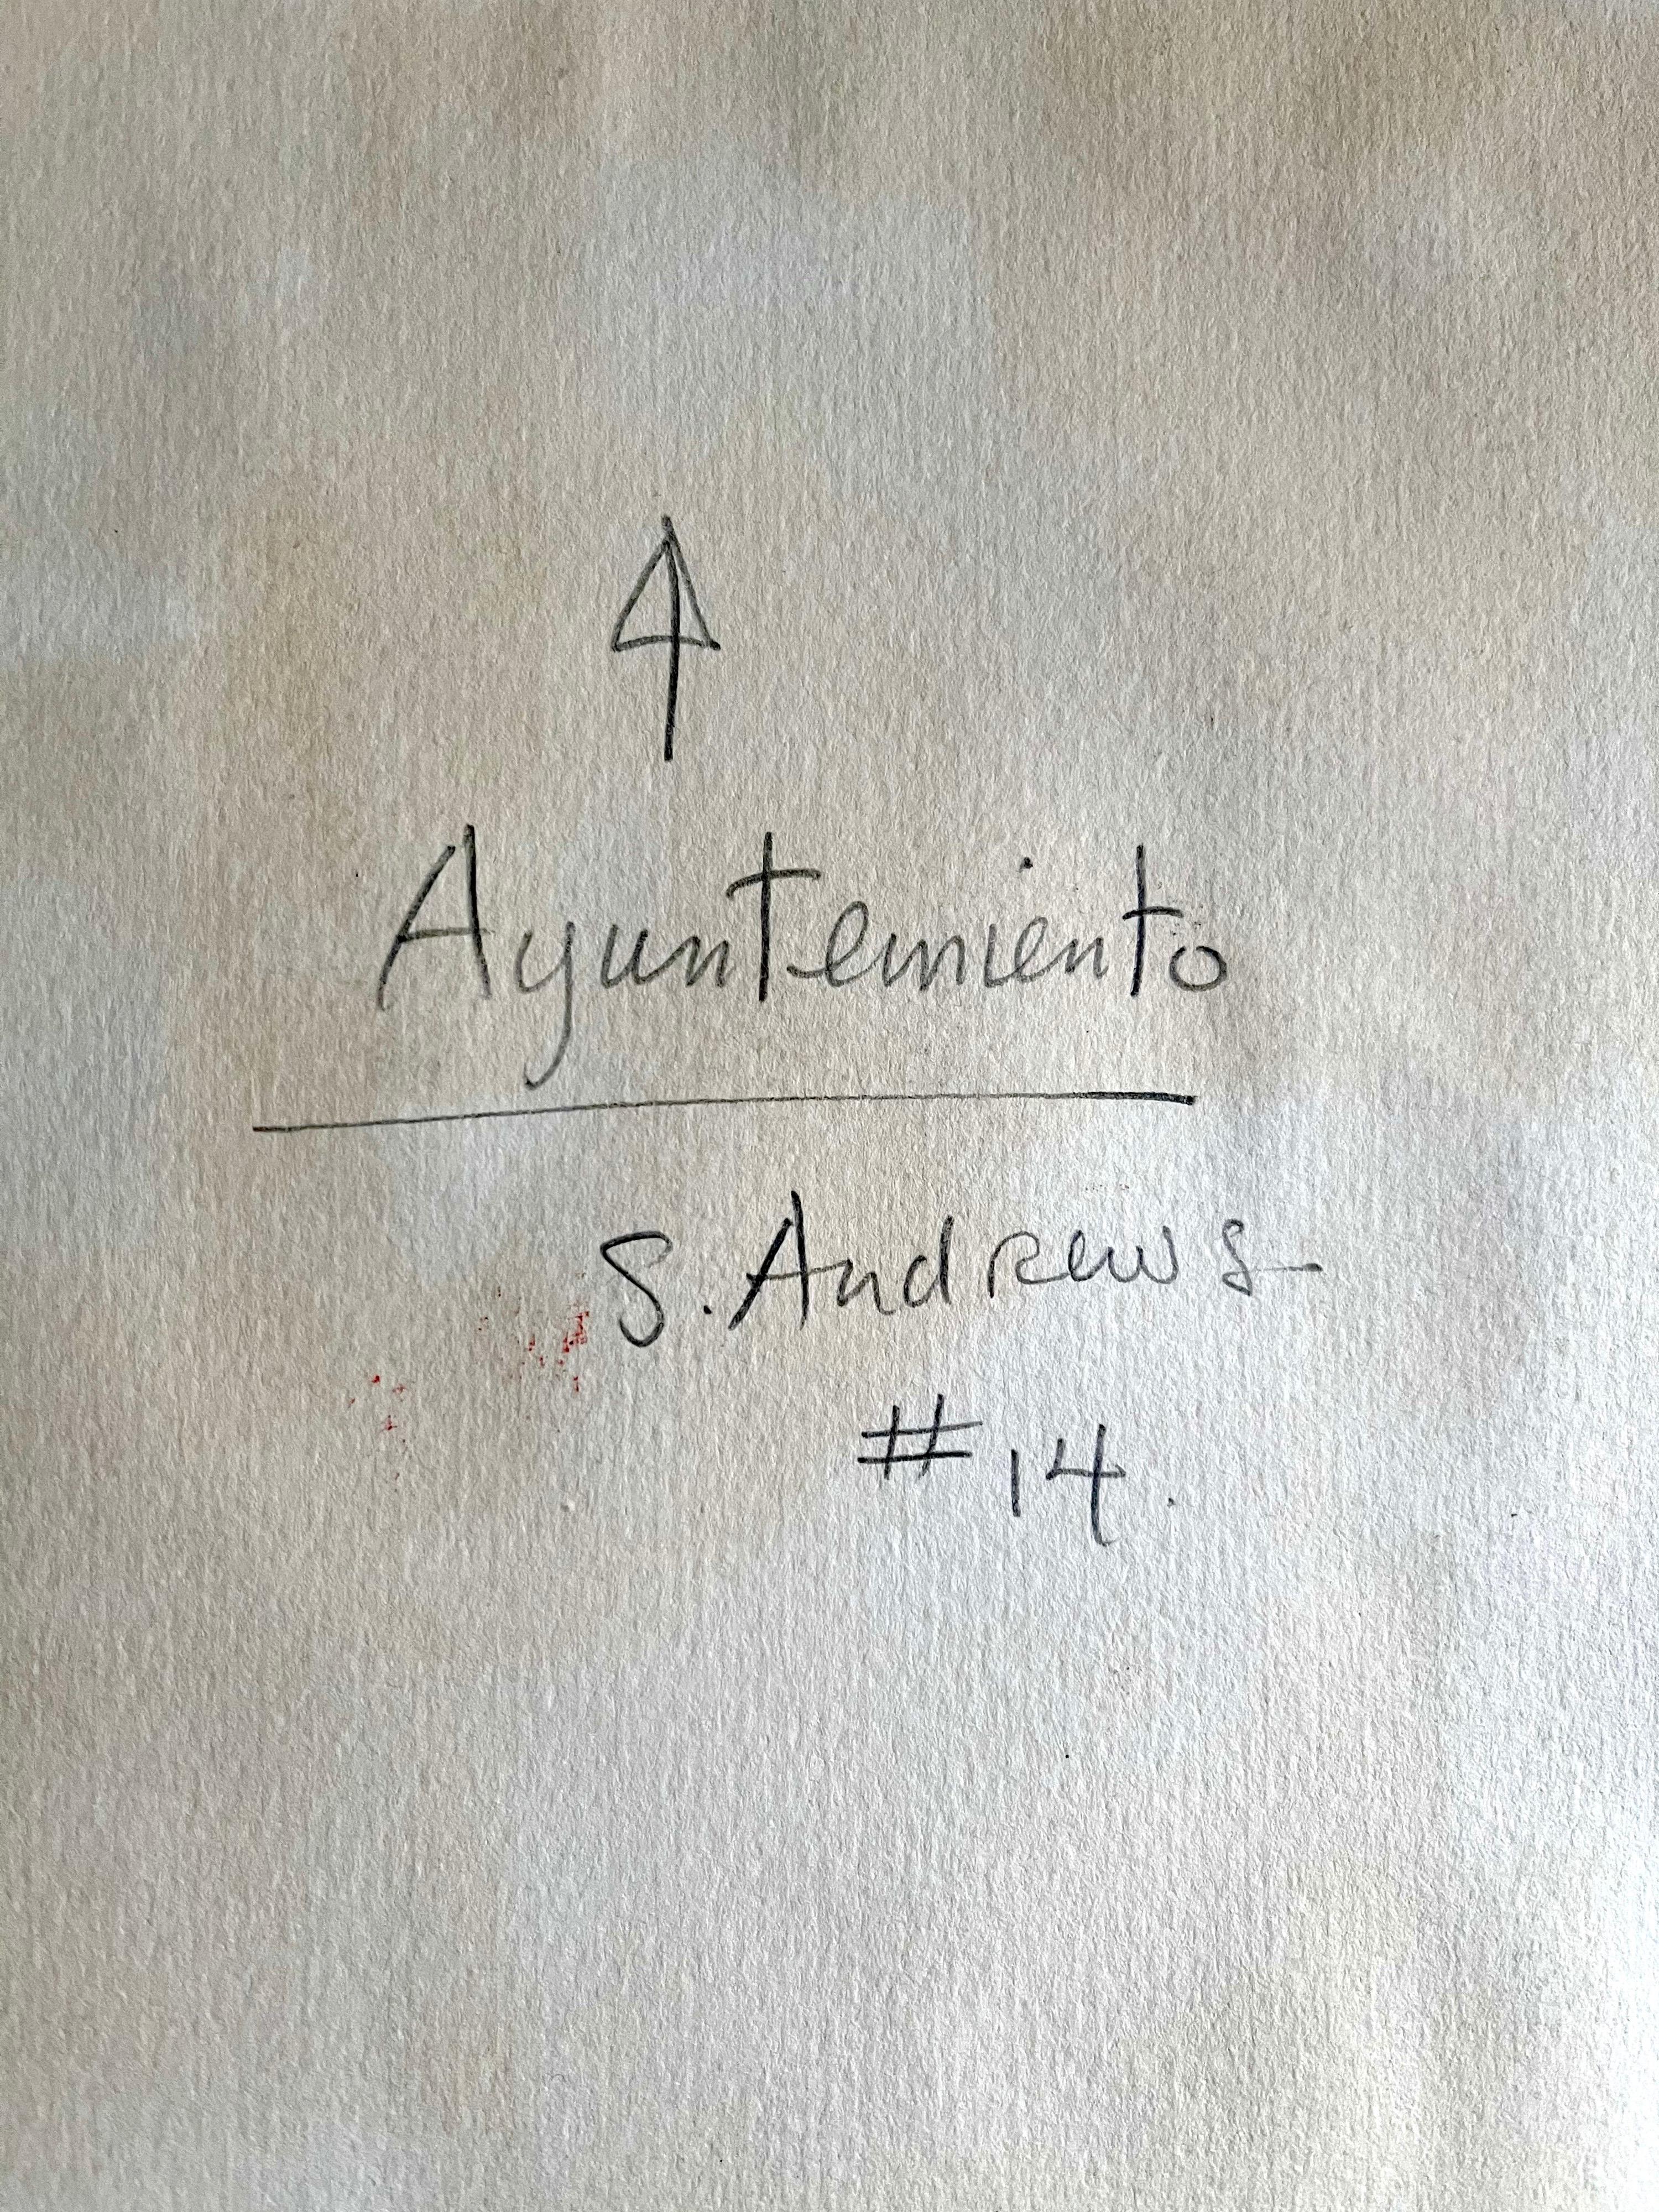 Ayuntemiento
S. Andrews
#14.